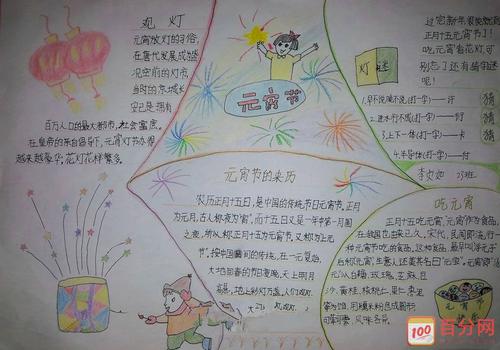 观灯
元宵放灯的习俗，
在唐代发展成盛
况空前的灯市
当时的京城长
安已是拥有
百万人口的最大都市，社会富庶。
在皇帝的亲自倡导下，元宵灯节办得
越来越豪华，花灯花样繁多。
元宵节
过完新年很快就到
正月十五元宵节了！
吃元宵看花灯，可
别忘了还有猜字谜
呢！
灯谜
1.早不说晚不说（打一字）—许
2.进水行不成（打一字）—
3.上下一体（打一字）—卡
4.半导体（打一字）—付
猜
猜
元宵节的来历
农历正月十五日，是中国的传统节日元宵节，正月
为元月，古人称夜为"宵"，而十五日又是一年中第一个月圆
之夜，所以称正月十五为元宵节。又称为上元
节"。按中国民间的传统，在一元复始，
大地回春的节日夜晚，天上明月
高悬，地上彩灯万盏，人们观灯、
吃元宵
正月十五吃元宵，"元宵"作为食品，
在我国也由来已久。宋代，民间即流行一
种元宵节吃的食品。这种食品，最早叫浮元子"
后称元宵"，生意人还美其名曰"元宝"。元宵"即"汤
元"以白糖、玫瑰、芝麻、豆
沙、黄桂、核桃仁、果仁、枣泥
等为馅，用糯米粉包成圆形，
可荤可素，风味各异。
元宵节
快乐
100
百分网